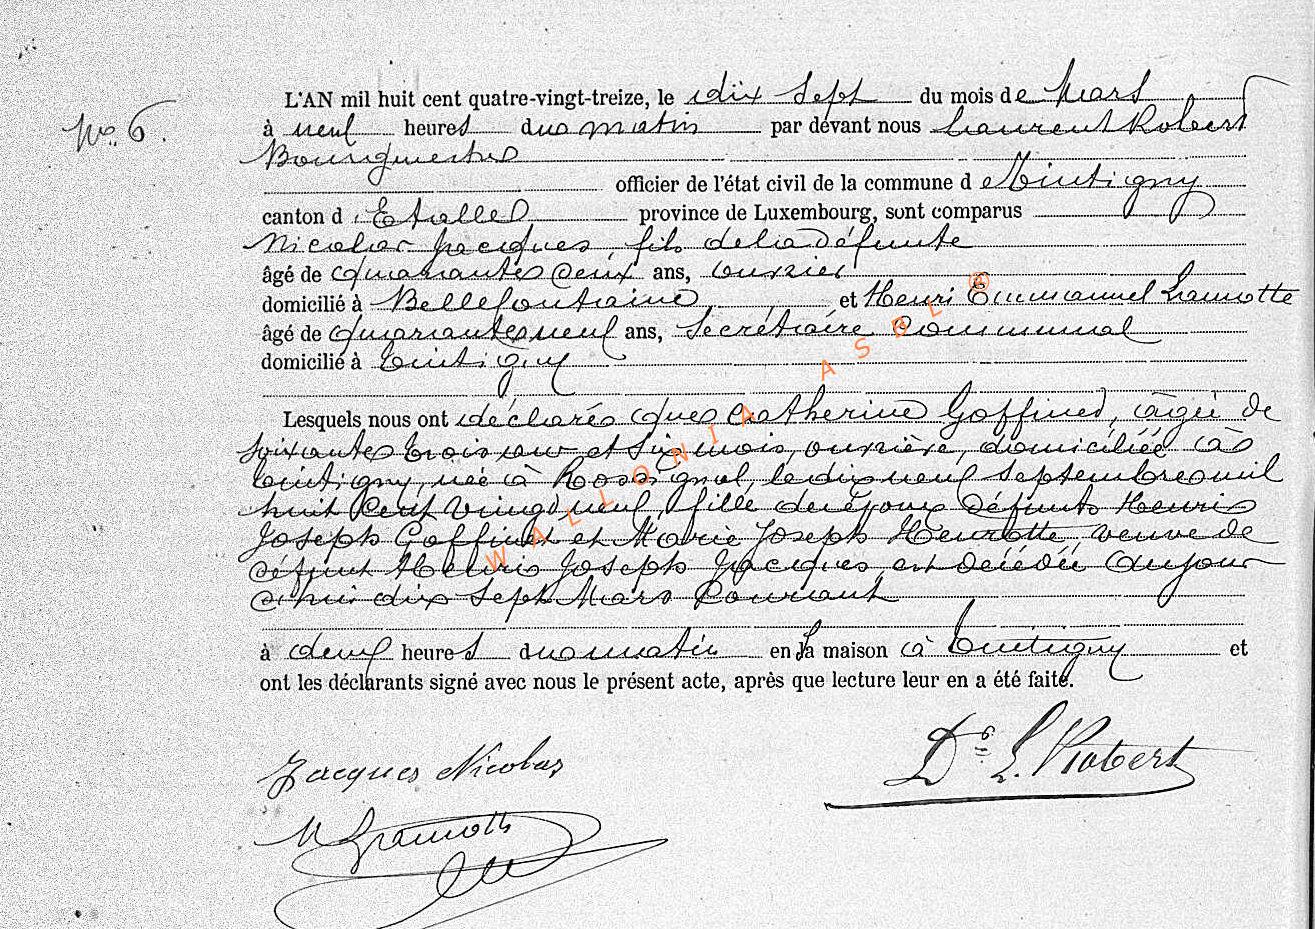 No 6.
L'AN mil huit cent quatre-vingt-treize, le dix sept du mois de Mars
à neuf heures du matin par devant nous Laurent Robert
Bourgmestre
officier de l'état civil de la commune de Tintigny
canton d'Etalle province de Luxembourg, sont comparus
Nicolas Jacques, fils de la défunte
âgé de quarante deux ans, ouvrier
domicilié à Bellefontaine et Henri Emmanuel Lamotte
âgé de quarante neuf ans, Secrétaire communal
domicilié à Tintigny
Lesquels nous ont déclaré que Catherine Goffinet, âgée de
soixante trois ans et six mois, ouvrière, domiciliée à
Tintigny, née à Rossignol, le dix neuf septembre mil
huit cent vingt neuf, fille des époux défunts Henri
Joseph Goffinet et Marie Joseph Henrotte veuve de
défunt Henri Joseph Jacques, est décédée aujour
d'hui dix sept Mars courant
à deux heures du matin en sa maison à Tintigny et
ont les déclarants signé avec nous le présent acte, après que lecture leur en a été faite.
Jacques Nicolas
Dr L. Robert
Lamotte
WALLONIA ASBL ®